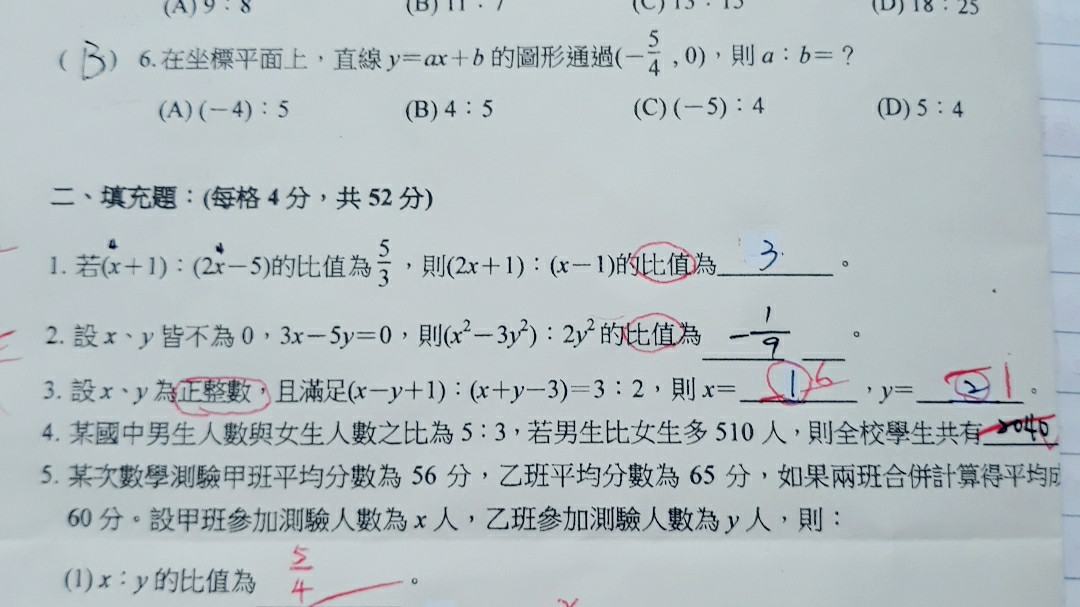 (A) 9：8 (B) 11：7 (C) 13：15 (D) 18：25
( B ) 6. 在坐標平面上，直線 y=ax+b 的圖形通過(-5/4 , 0)，則 a：b=？
(A) (-4)：5 (B) 4：5 (C) (-5)：4 (D) 5：4
二、填充題：(每格 4 分，共 52 分)
1. 若(x+1)：(2x-5)的比值為5/3，則(2x+1)：(x-1)的比值為 3 。
2. 設 x、y 皆不為 0，3x-5y=0，則(x²-3y²)：2y² 的比值為 -1/9 。
3. 設 x、y 為正整數，且滿足(x-y+1)：(x+y-3)=3：2，則 x= 1 6 ，y= 2 1 。
4. 某國中男生人數與女生人數之比為 5：3，若男生比女生多 510 人，則全校學生共有 2040
5. 某次數學測驗甲班平均分數為 56 分，乙班平均分數為 65 分，如果兩班合併計算得平均成
60 分。設甲班參加測驗人數為 x 人，乙班參加測驗人數為 y 人，則：
(1) x：y 的比值為 5/4 。